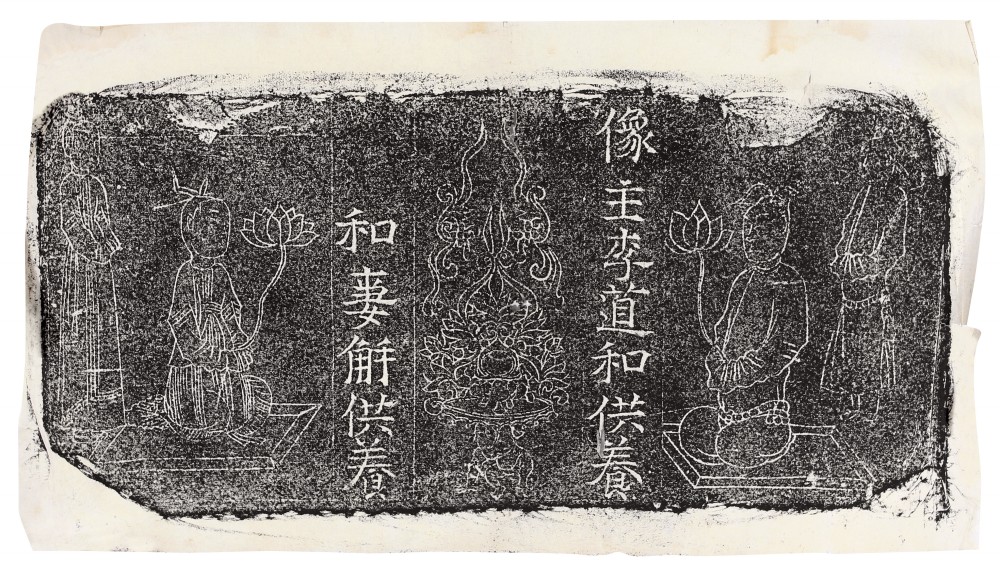 像主李道和供養
和妻解供養